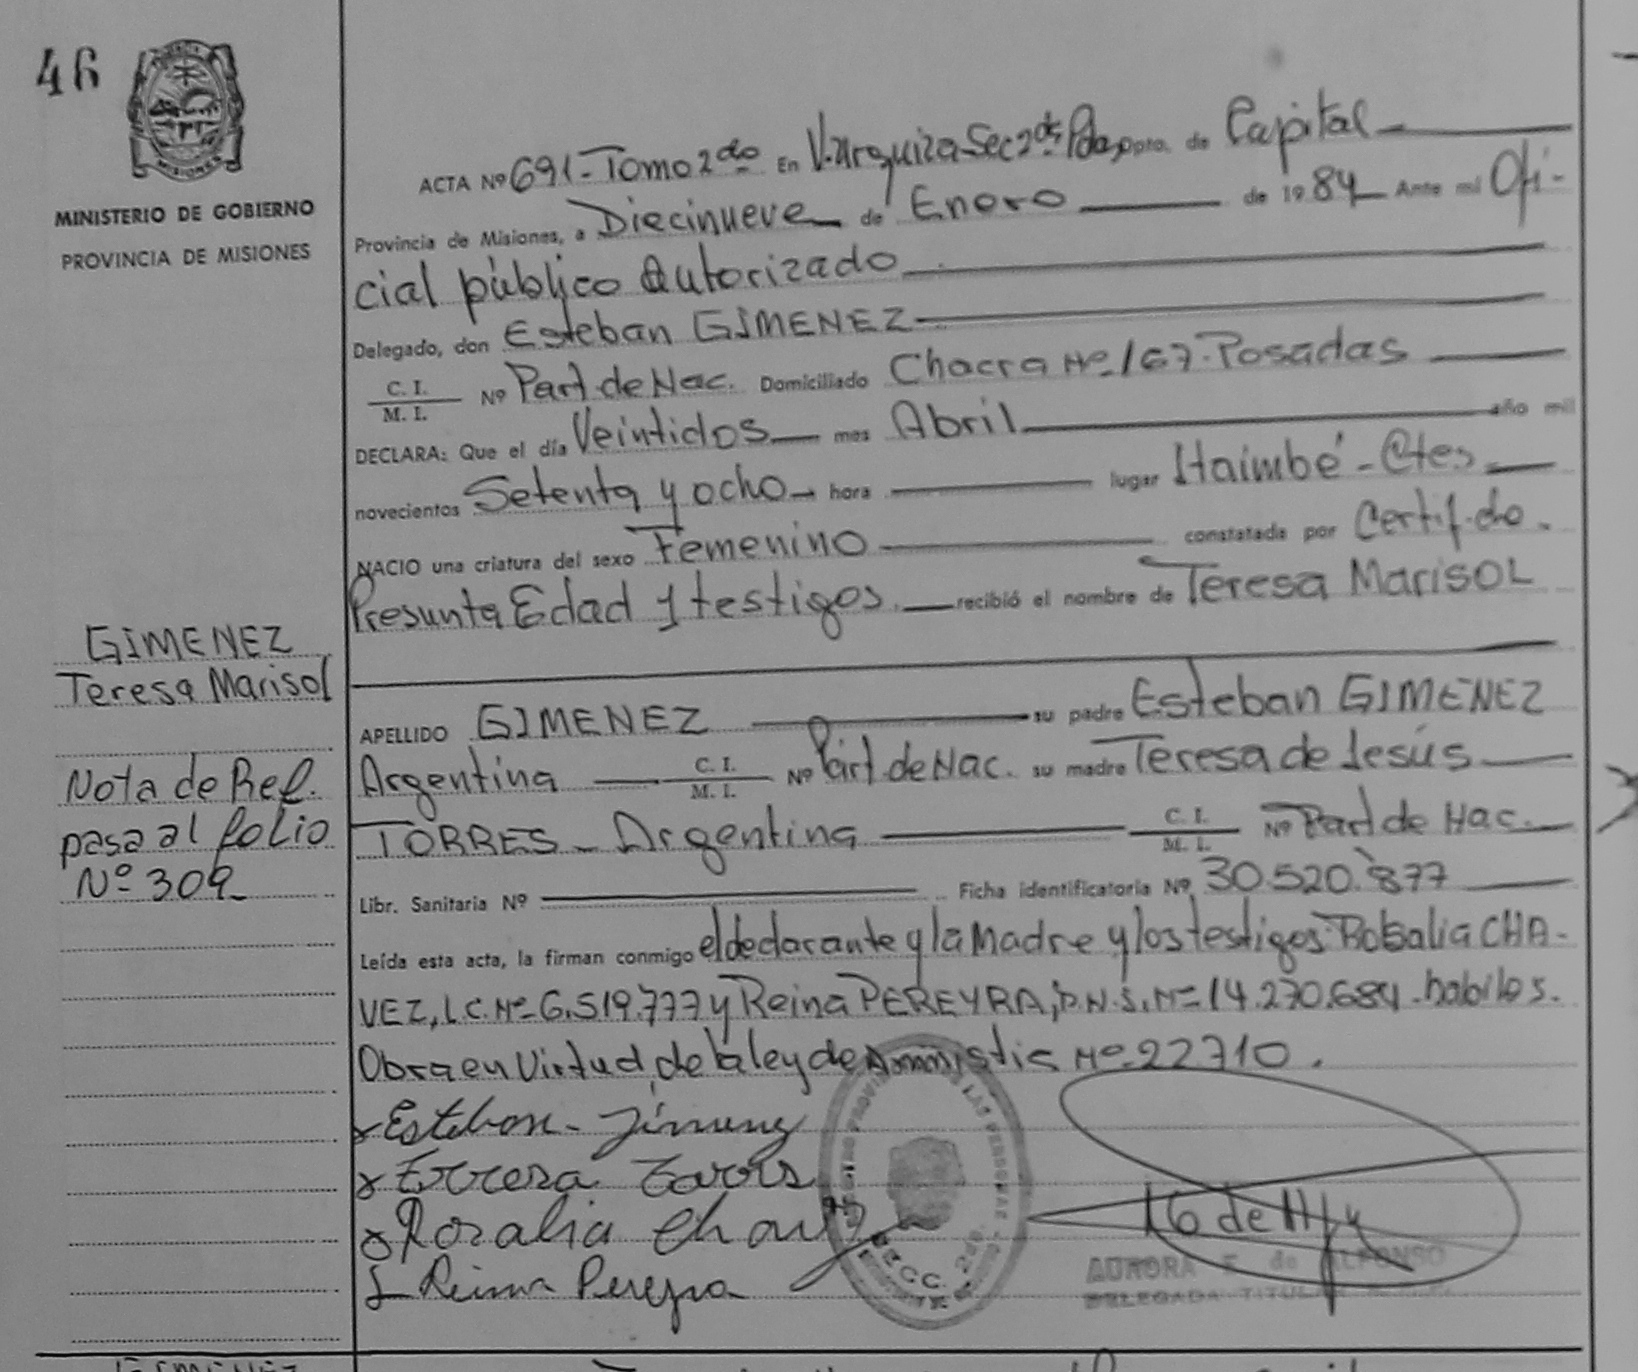 46
MISIONES
MINISTERIO DE GOBIERNO
PROVINCIA DE MISIONES
ACTA Nº 691-Tomo 2do En V. Urquiza Sec 2da Pdas Dpto. de Capital
Provincia de Misiones, a Diecinueve de Enero de 1984 Ante mi Ofi-
cial público Autorizado
Delegado, don Esteban GIMENEZ
C. I. / M. I. Nº Part de Nac. Domiciliado Chacra Nº 167-Posadas
DECLARA: Que el día Veintidos mes Abril año mil
novecientos Setenta y ocho hora lugar Itaimbé-Ctes
NACIO una criatura del sexo Femenino constatada por Certif. de
Presunta Edad y testigos. recibió el nombre de Teresa MarisOL
APELLIDO GIMENEZ su padre Esteban GIMENEZ
Argentina C. I. / M. I. Nº Part. de Nac. su madre Teresa de Jesús
TORRES - Argentina C. I. / M. I. Nº Part de Nac.
Libr. Sanitaria Nº Ficha identificatoria Nº 30.520.877
Leída esta acta, la firman conmigo el declarante y la Madre y los testigos Rosalia CHA-
VEZ, L.C. Nº 6.519.777 y Reina PEREYRA, D.N.I. Nº 14.270.684 - habiles.
Obra en Virtud de la ley de Amnistia Nº 22710.
GIMENEZ
Teresa Marisol
Nota de Ref.
pasa al folio
Nº 309
Esteban Jimenez
Rosalia Chavez
Reina Pereyra
SECC. 2da.
AURORA de ALFONSO
DELEGADA TITULAR